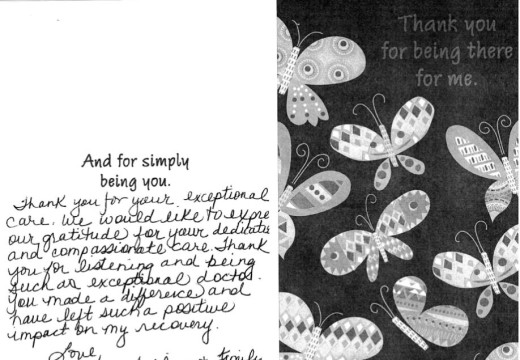 And for simply
being you.
Thank you for your exceptional
care. We would like to expre
our gratitude for your dedicatio
and compassionate care. Thank
you for listening and being
such an exceptional doctor.
You made a difference and
have left such a positive
impact on my recovery.
Love,
Thank you
for being there
for me.